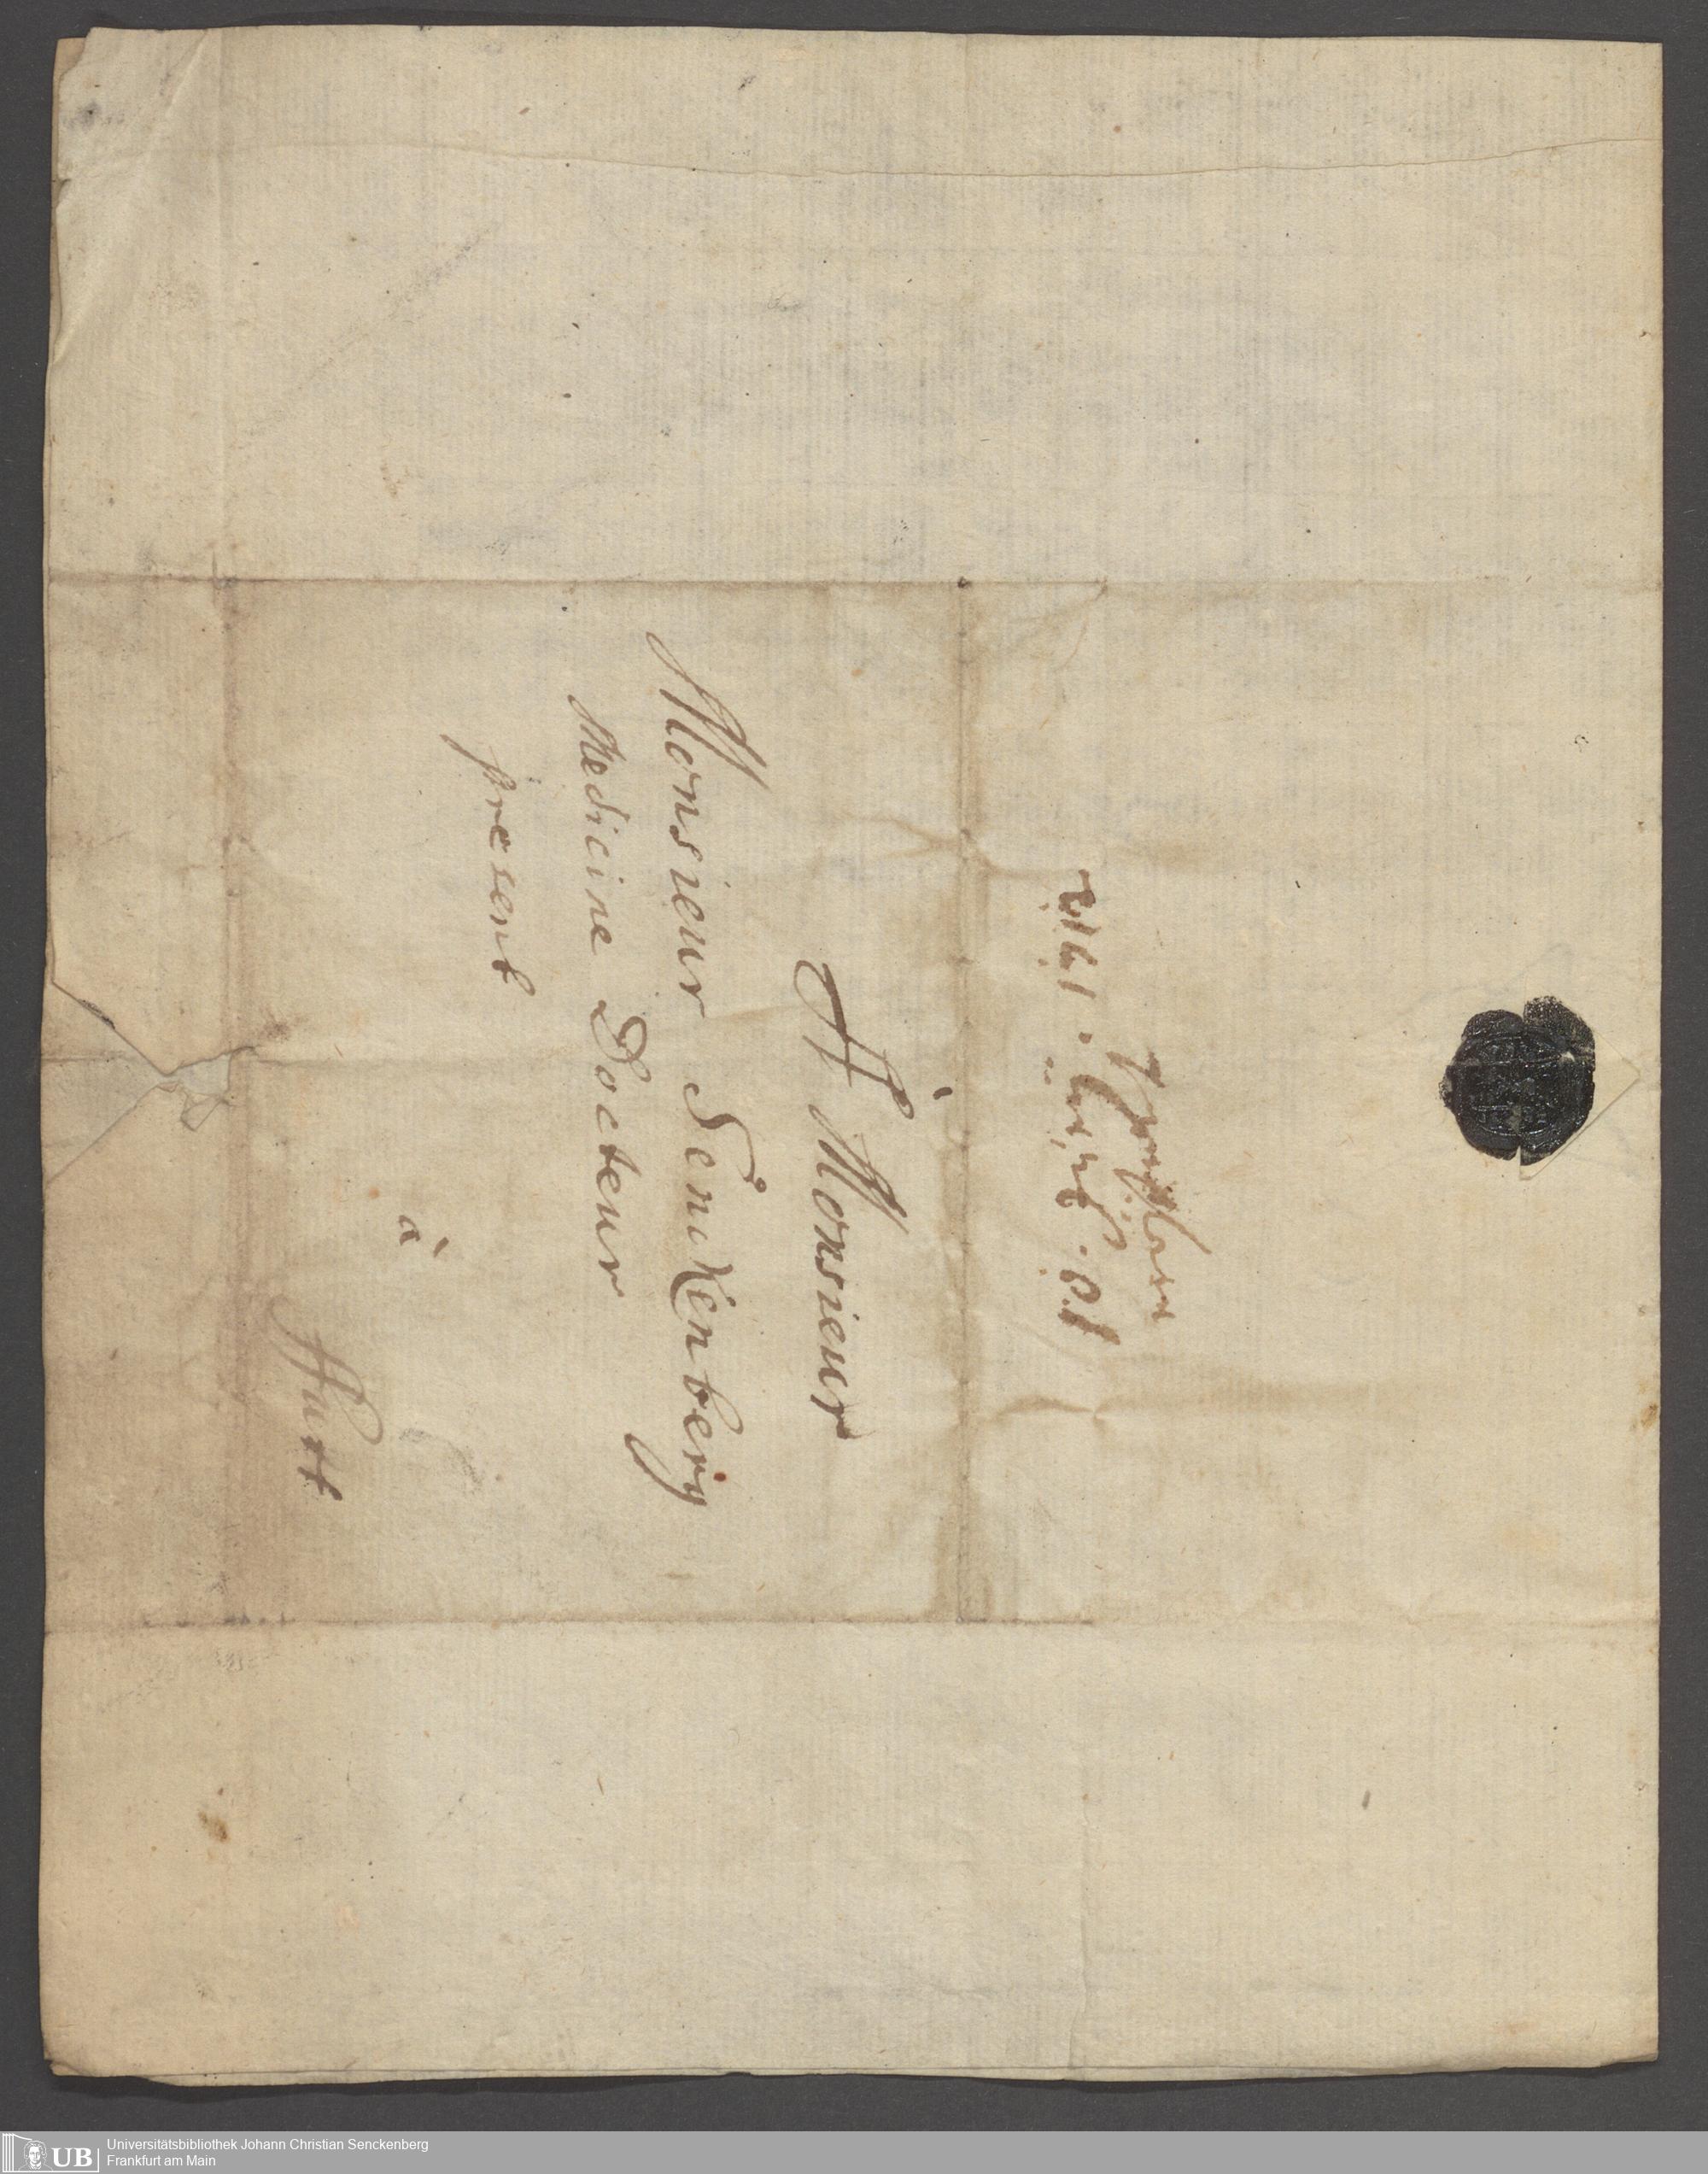 À Monsieur
Monsieur Senkenberg
Medicine Docteur
present
à
ffurt
Universitätsbibliothek Johann Christian Senckenberg
Frankfurt am Main
UB